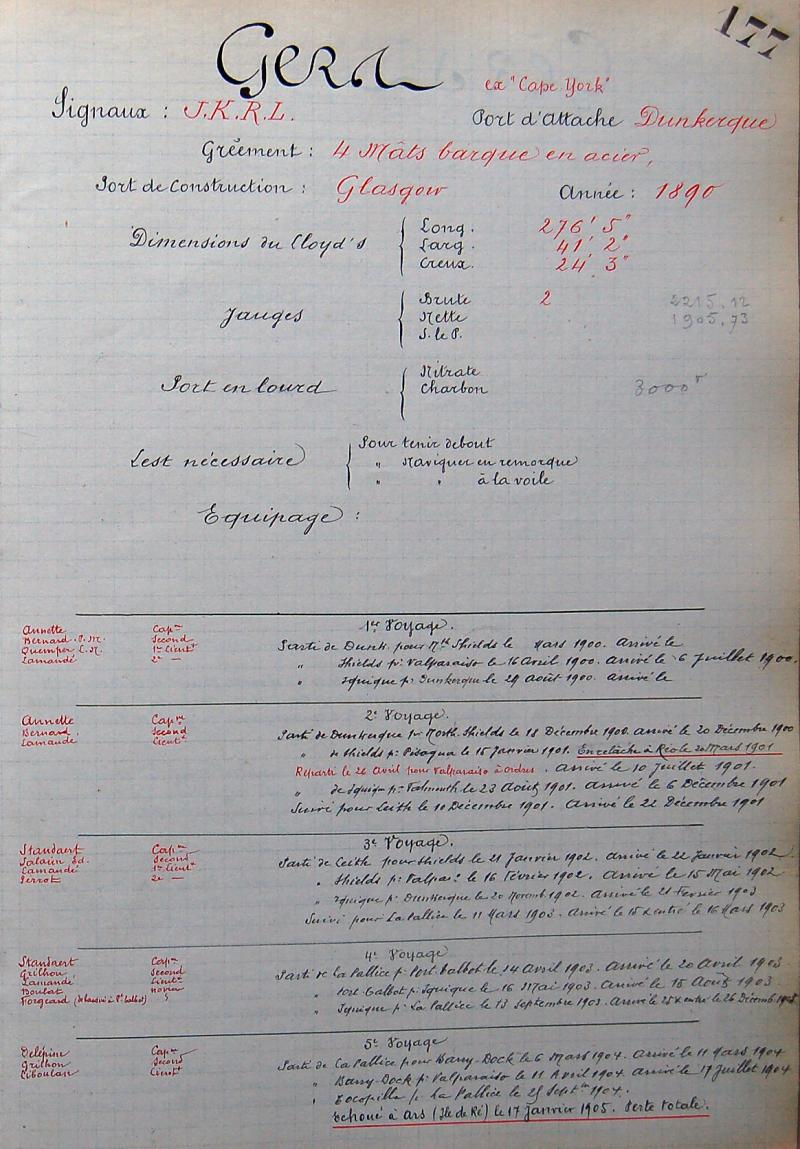 177
Gera ex "Cape York"
Signaux : J.K.R.L. Port d'Attache Dunkerque
Gréement : 4 Mâts barque en acier,
Port de Construction : Glasgow Année : 1890
Dimensions du Lloyd's
Long. 276' 5"
Larg. 41' 2"
Creux. 24' 3"
Jauges
Brute 2 2215,12
Nette 1905,73
S. le P.
Port en lourd
Nitrate
Charbon 3000T
Lest nécessaire
Pour tenir debout
" Naviguer en remorque
" " à la voile
Equipage :
1er Voyage.
Annette Capne
Bernard. P.M. Second
Quemper L.M. 1er Lieutt
Lamandé 2e —
Parti de Dunk. pour Nth Shields le Mars 1900. Arrivé le
" Shields pr Valparaiso le 16 Avril 1900. Arrivé le 6 Juillet 1900.
" Iquique pr Dunkerque le 29 Août 1900. Arrivé le
2e Voyage.
Annette Capne
Bernard. Second
Lamandé Lieutt
Parti de Dunkerque pr North. Shields le 18 Décembre 1900. Arrivé le 20 Décembre 1900
" de Shields pr Pisagua le 15 Janvier 1901. En relâche à Rio le 20 Mars 1901
Reparti le 26 Avril pour Valparaiso à ordres. Arrivé le 10 Juillet 1901.
" de Iquique pr Falmouth le 23 Août 1901. Arrivé le 6 Décembre 1901
Suivi pour Leith le 10 Décembre 1901. Arrivé le 22 Décembre 1901
3e Voyage.
Standaert Capne
Salaün Ed. Second
Lamandé 1er Lieutt
Perrot 2e —
Parti de Leith pour Shields le 21 Janvier 1902. Arrivé le 22 Janvier 1902
" Shields pr Valpar. le 16 Février 1902. Arrivé le 15 Mai 1902
" Iquique pr Dunkerque le 20 Novemb. 1902. Arrivé le 21 Février 1903
Suivi pour La Pallice le 11 Mars 1903. Arrivé le 15 & entré le 16 Mars 1903
4e Voyage
Standaert Capne
Grilhon Second
Lamandé Lieutt
Boulat novice
Forgeard
Parti de la Pallice pr Port Talbot le 14 Avril 1903. Arrivé le 20 Avril 1903
" Port Talbot pr Iquique le 16 Mai 1903. Arrivé le 15 Août 1903.
" Iquique pr La Pallice le 13 Septembre 1903. Arrivé le 25 & entré le 26 Décemb 1903
5e Voyage
Delépine Capne
Grilhon Second
Ciboulan Lieutt
Parti de La Pallice pour Barry-Dock le 6 Mars 1904. Arrivé le 11 Mars 1904
" Barry-Dock pr Valparaiso le 11 Avril 1904. Arrivé le 17 Juillet 1904
" Tocopilla pr la Pallice le 25 Septbre 1904.
Echoué à Ars (Ile de Ré) le 17 Janvier 1905. Perte totale.